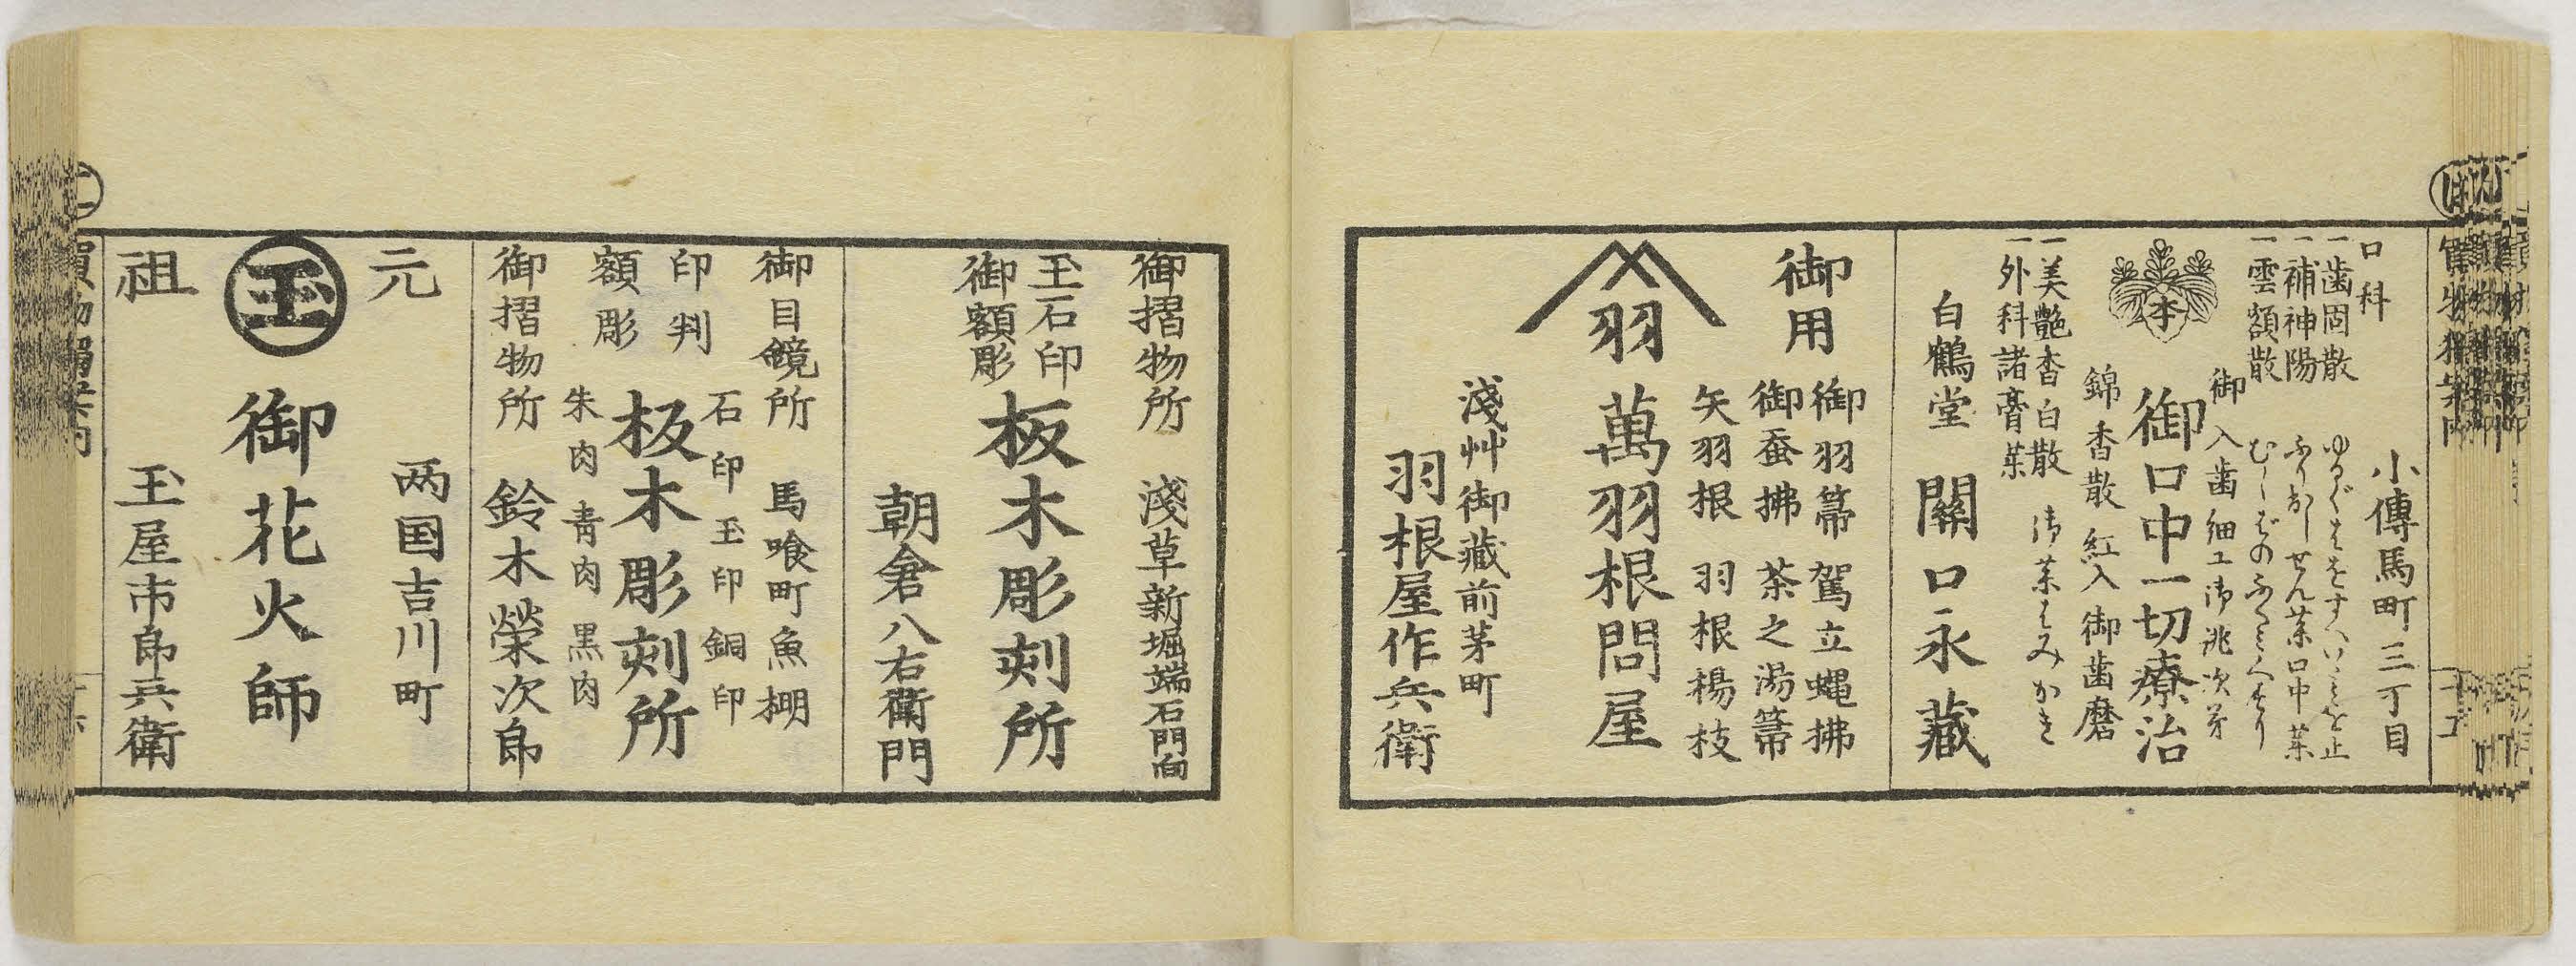 小傳馬町三丁目
口科
一歯固散
一補神陽
一雲額散
ゆるぐはをすへいたみを止
ふり出しせん薬口中薬
御入歯細工御逃次第
御口中一切療治
錦香散 紅入 御歯磨
一美艶香白散 御薬はみがき
一外科諸膏薬
白鶴堂 關口永藏
御用
御羽箒 駕立蠅拂
御蚕拂 茶之湯箒
矢羽根 羽根楊枝
羽
萬羽根問屋
淺艸御藏前茅町
羽根屋作兵衛
御摺物所 淺草新堀端石門向
玉石印
御額彫
板木彫刻所
朝倉八右衛門
御目鏡所 馬喰町魚棚
印判
額彫
石印 玉印 銅印
板木彫刻所
朱肉 青肉 黒肉
御摺物所 鈴木榮次郎
元
祖
两国吉川町
玉
御花火師
玉屋市郎兵衛